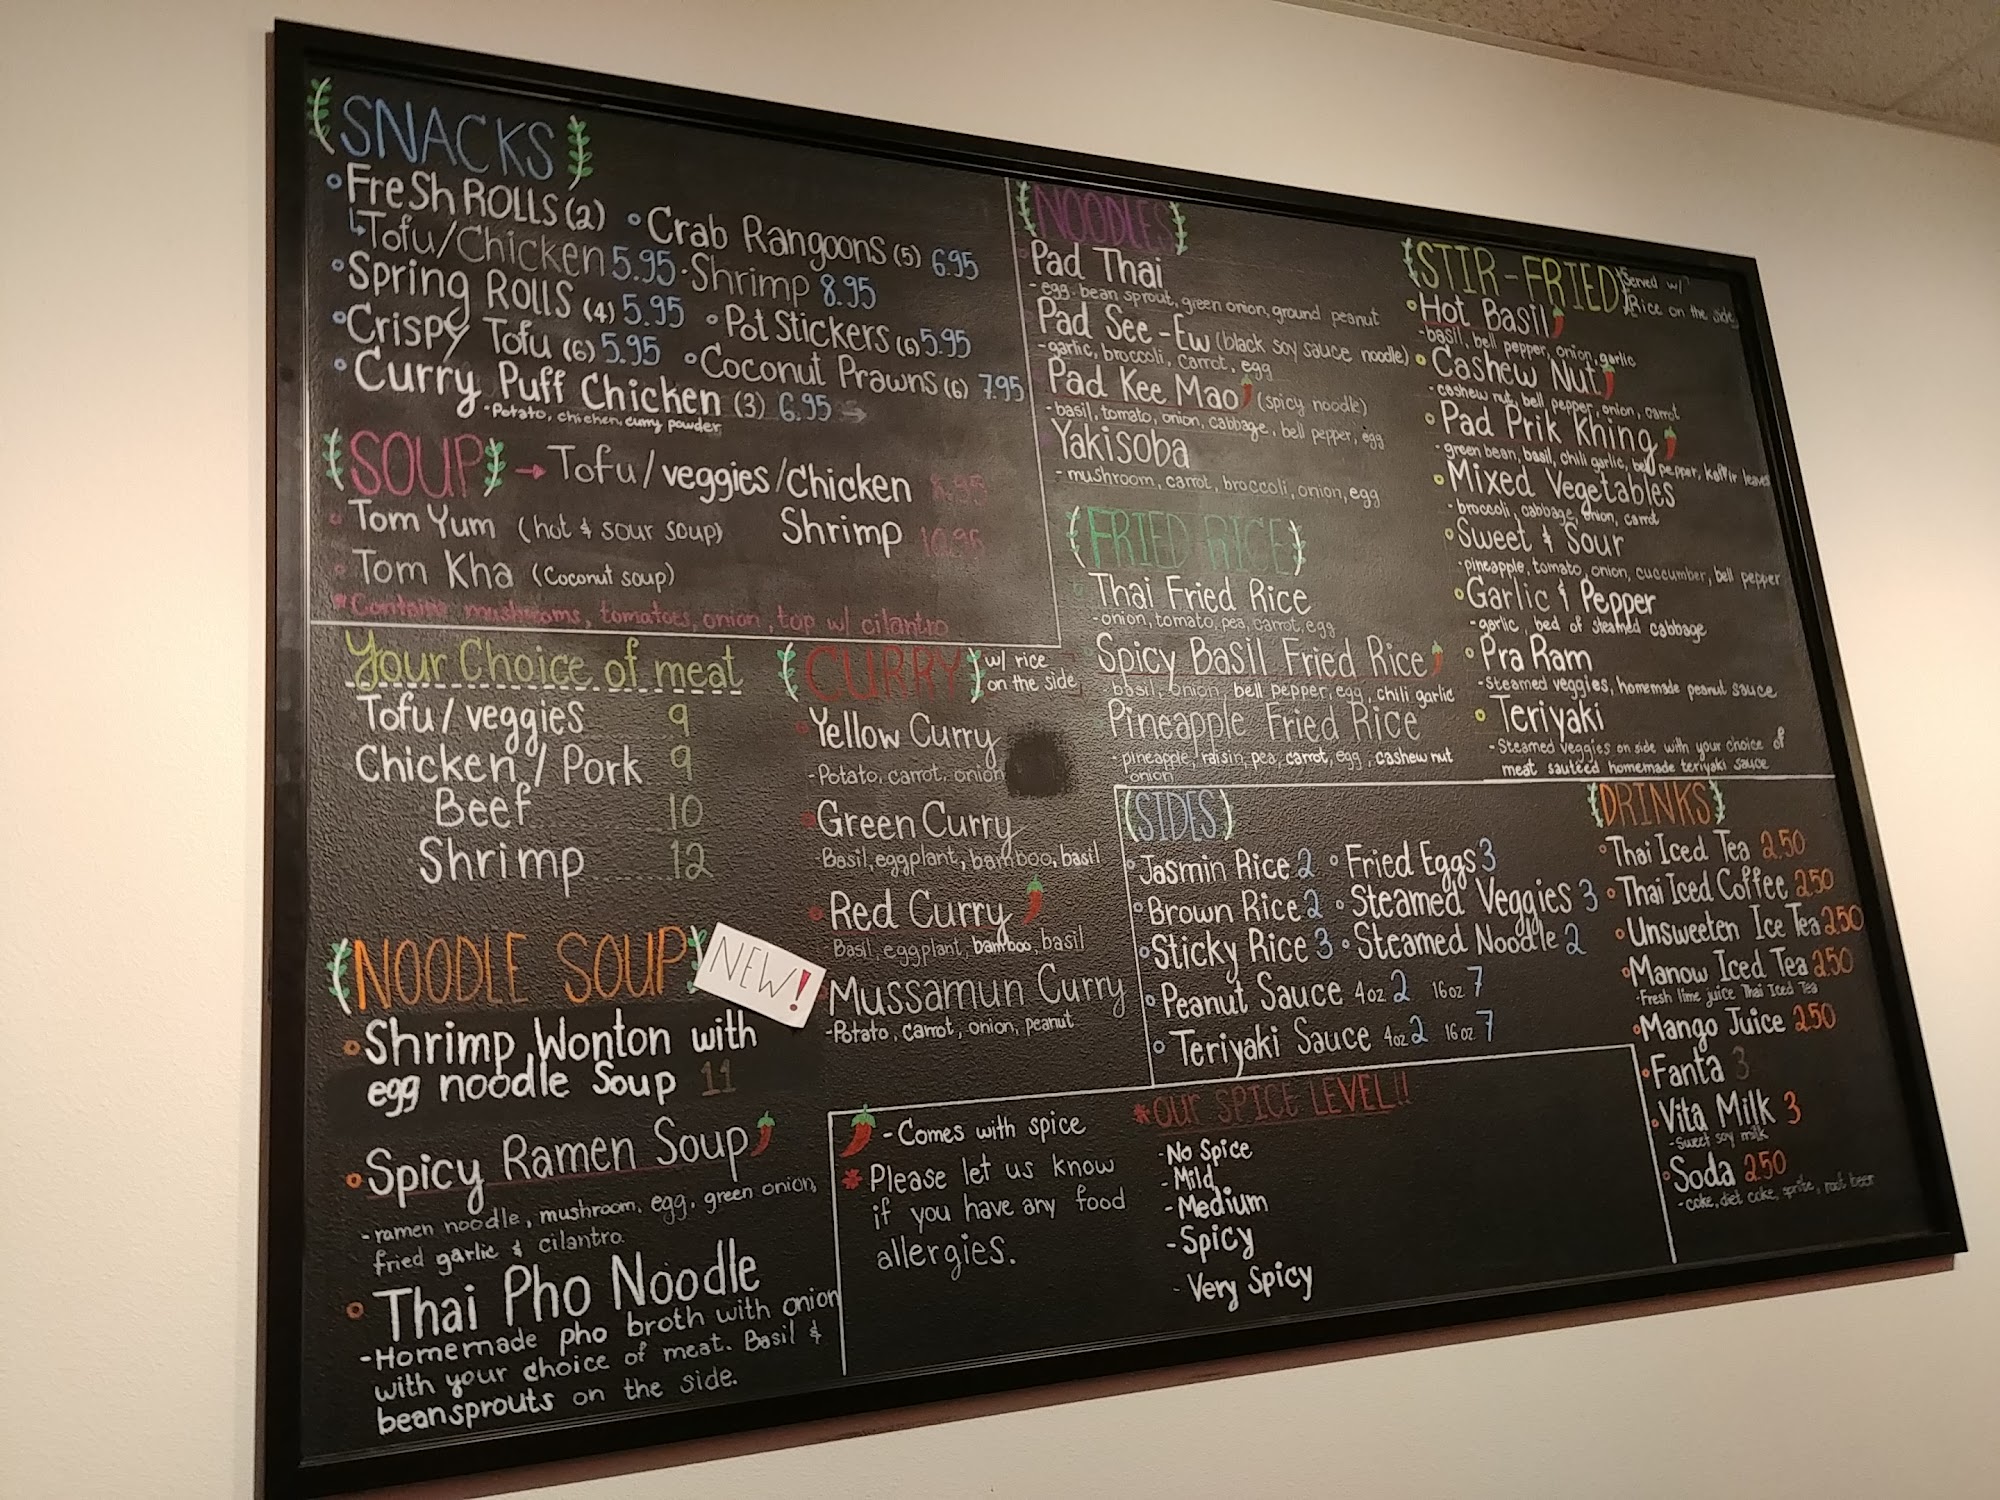 SNACKS
FreSh ROLLS (2)
Tofu/Chicken 5.95 · Shrimp 8.95
Spring ROLLS (4) 5.95
Crispy Tofu (6) 5.95
Curry Puff Chicken (3) 6.95
-Potato, chicken, curry powder
Crab Rangoons (5) 6.95
Pot Stickers (6) 5.95
Coconut Prawns (6) 7.95
SOUP → Tofu/veggies/Chicken 8.95
Shrimp 10.95
Tom Yum (hot & sour soup)
Tom Kha (Coconut soup)
*Contains mushrooms, tomatoes, onion, top w/ cilantro
Your Choice of meat
Tofu/veggies 9
Chicken/Pork 9
Beef 10
Shrimp 12
NOODLE SOUP NEW!
Shrimp Wonton with
egg noodle Soup 11
Spicy Ramen Soup
-ramen noodle, mushroom, egg, green onion,
fried garlic & cilantro.
Thai Pho Noodle
-Homemade pho broth with onion
with your choice of meat. Basil &
beansprouts on the side.
CURRY w/ rice
on the side
Yellow Curry
-Potato, carrot, onion
Green Curry
-Basil, eggplant, bamboo, basil
Red Curry
Basil, eggplant, bamboo, basil
Mussamun Curry
-Potato, carrot, onion, peanut
NOODLES
Pad Thai
-egg, bean sprout, green onion, ground peanut
Pad See-Ew (black soy sauce noodle)
-garlic, broccoli, carrot, egg
Pad Kee Mao (spicy noodle)
-basil, tomato, onion, cabbage, bell pepper, egg
Yakisoba
-mushroom, carrot, broccoli, onion, egg
FRIED RICE
Thai Fried Rice
-onion, tomato, pea, carrot, egg
Spicy Basil Fried Rice
basil, onion, bell pepper, egg, chili garlic
Pineapple Fried Rice
-pineapple, raisin, pea, carrot, egg, cashew nut
onion
STIR-FRIED Served w/
Rice on the side
Hot Basil
-basil, bell pepper, onion, garlic
Cashew Nut
-cashew nut, bell pepper, onion, carrot
Pad Prik Khing
-green bean, basil, chili garlic, bell pepper, kaffir leaves
Mixed Vegetables
-broccoli, cabbage, onion, carrot
Sweet & Sour
-pineapple, tomato, onion, cuccumber, bell pepper
Garlic & Pepper
-garlic, bed of steamed cabbage
Pra Ram
-Steamed veggies, homemade peanut sauce
Teriyaki
-Steamed veggies on side with your choice of
meat sauteed homemade teriyaki sauce
SIDES
Jasmin Rice 2
Brown Rice 2
Sticky Rice 3
Fried Eggs 3
Steamed Veggies 3
Steamed Noodle 2
Peanut Sauce 4oz 2 16oz 7
Teriyaki Sauce 4oz 2 16oz. 7
DRINKS
Thai Iced Tea 2.50
Thai Iced Coffee 2.50
Unsweeten Ice Tea 2.50
Manow Iced Tea 2.50
-Fresh lime juice Thai Iced Tea
Mango Juice 2.50
Fanta 3
Vita Milk 3
-Sweet soy milk
Soda 2.50
-coke, diet coke, sprite, root beer
-Comes with spice
*Please let us know
if you have any food
allergies.
*OUR SPICE LEVEL!!
-No Spice
-Mild
-Medium
-Spicy
-Very Spicy